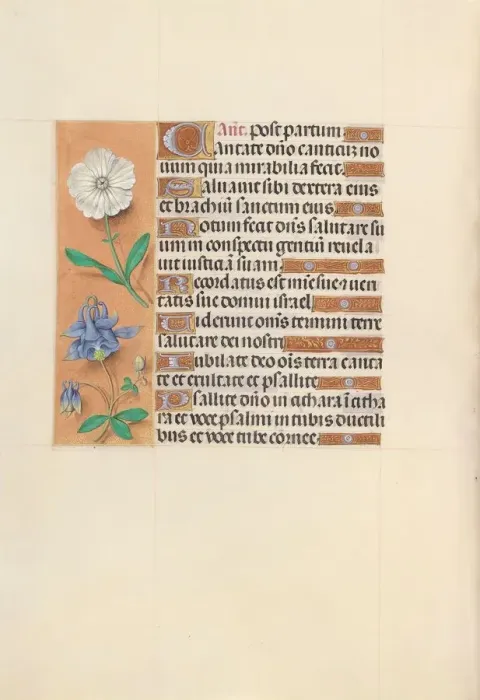 Añt. post partum
Cantate dño canticũ no
uum quia mirabilia fecit.
Saluauit sibi dextera eius
et brachiũ sanctum eius
Notum fecit dñs salutare su
um in conspectu gentiũ reuela
uit iusticiã suam.
Recordatus est mie sue et ueri
tatis sue domui israel
Uiderunt oms termini terre
salutare dei nostri
Iubilate deo ois terra canta
te et exultate et psallite
Psallite dño in cithara ĩ citha
ra et voce psalmi in tubis ductili
bus et voce tube cornee